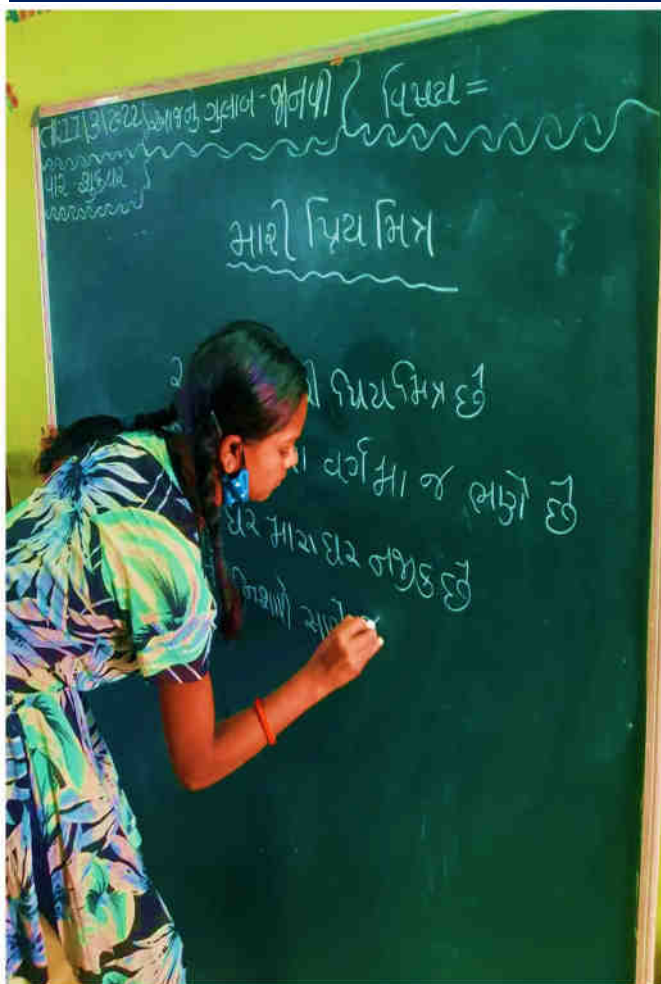 આજનું ગુલાબ - જાનવી વિષય =
વાર શુક્રવાર
મારી પ્રિય મિત્ર
પ્રિય મિત્ર છે
વર્ગમા જ ભણે છે
ઘર મારા ઘર નજીક છે